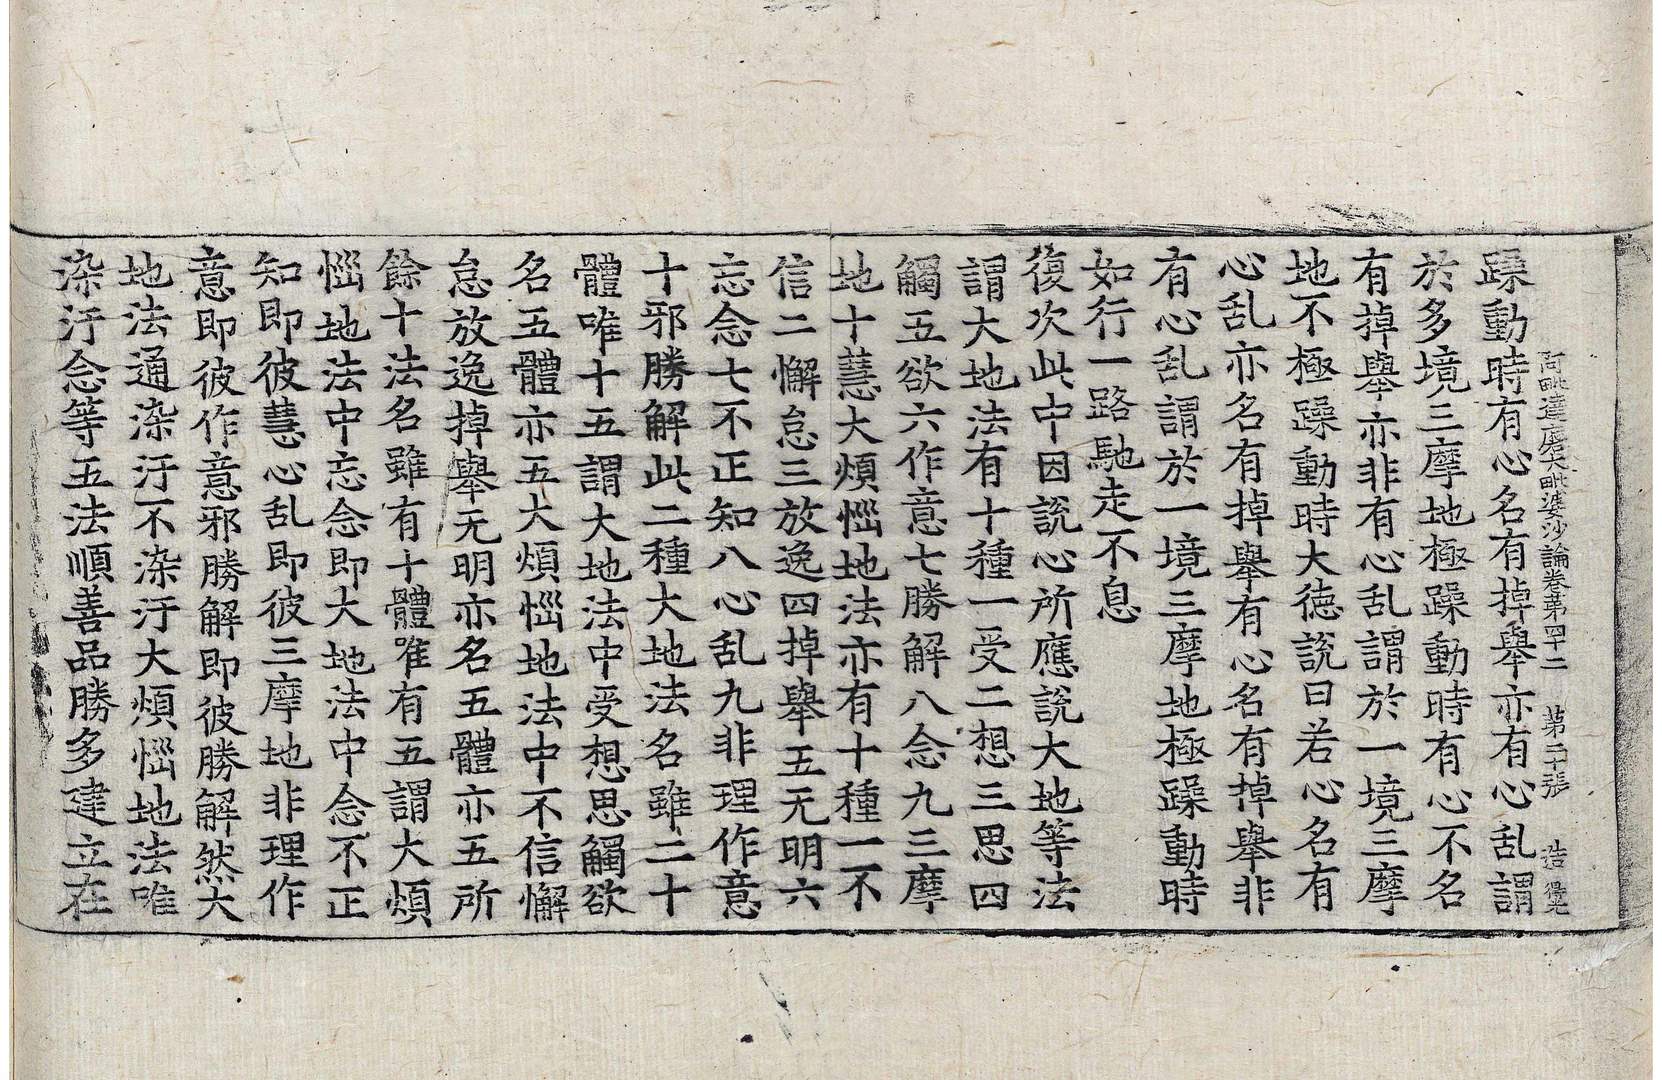 阿毗達磨大毗婆沙論卷第四十二 第二十張 造
躁動時有心名有掉舉亦有心乱謂
於多境三摩地極躁動時有心不名
有掉舉亦非有心乱謂於一境三摩
地不極躁動時大德說曰若心名有
心乱亦名有掉舉有心名有掉舉非
有心乱謂於一境三摩地極躁動時
如行一路馳走不息
復次此中因說心所應說大地等法
謂大地法有十種一受二想三思四
觸五欲六作意七勝解八念九三摩
地十慧大煩惱地法亦有十種一不
信二懈怠三放逸四掉舉五无明六
忘念七不正知八心乱九非理作意
十邪勝解此二種大地法名雖二十
體唯十五謂大地法中受想思觸欲
名五體亦五大煩惱地法中不信懈
怠放逸掉舉无明亦名五體亦五所
餘十法名雖有十體唯有五謂大煩
惱地法中忘念即大地法中念不正
知即彼慧心乱即彼三摩地非理作
意即彼作意邪勝解即彼勝解然大
地法通染汙不染汙大煩惱地法唯
染汙念等五法順善品勝多建立在